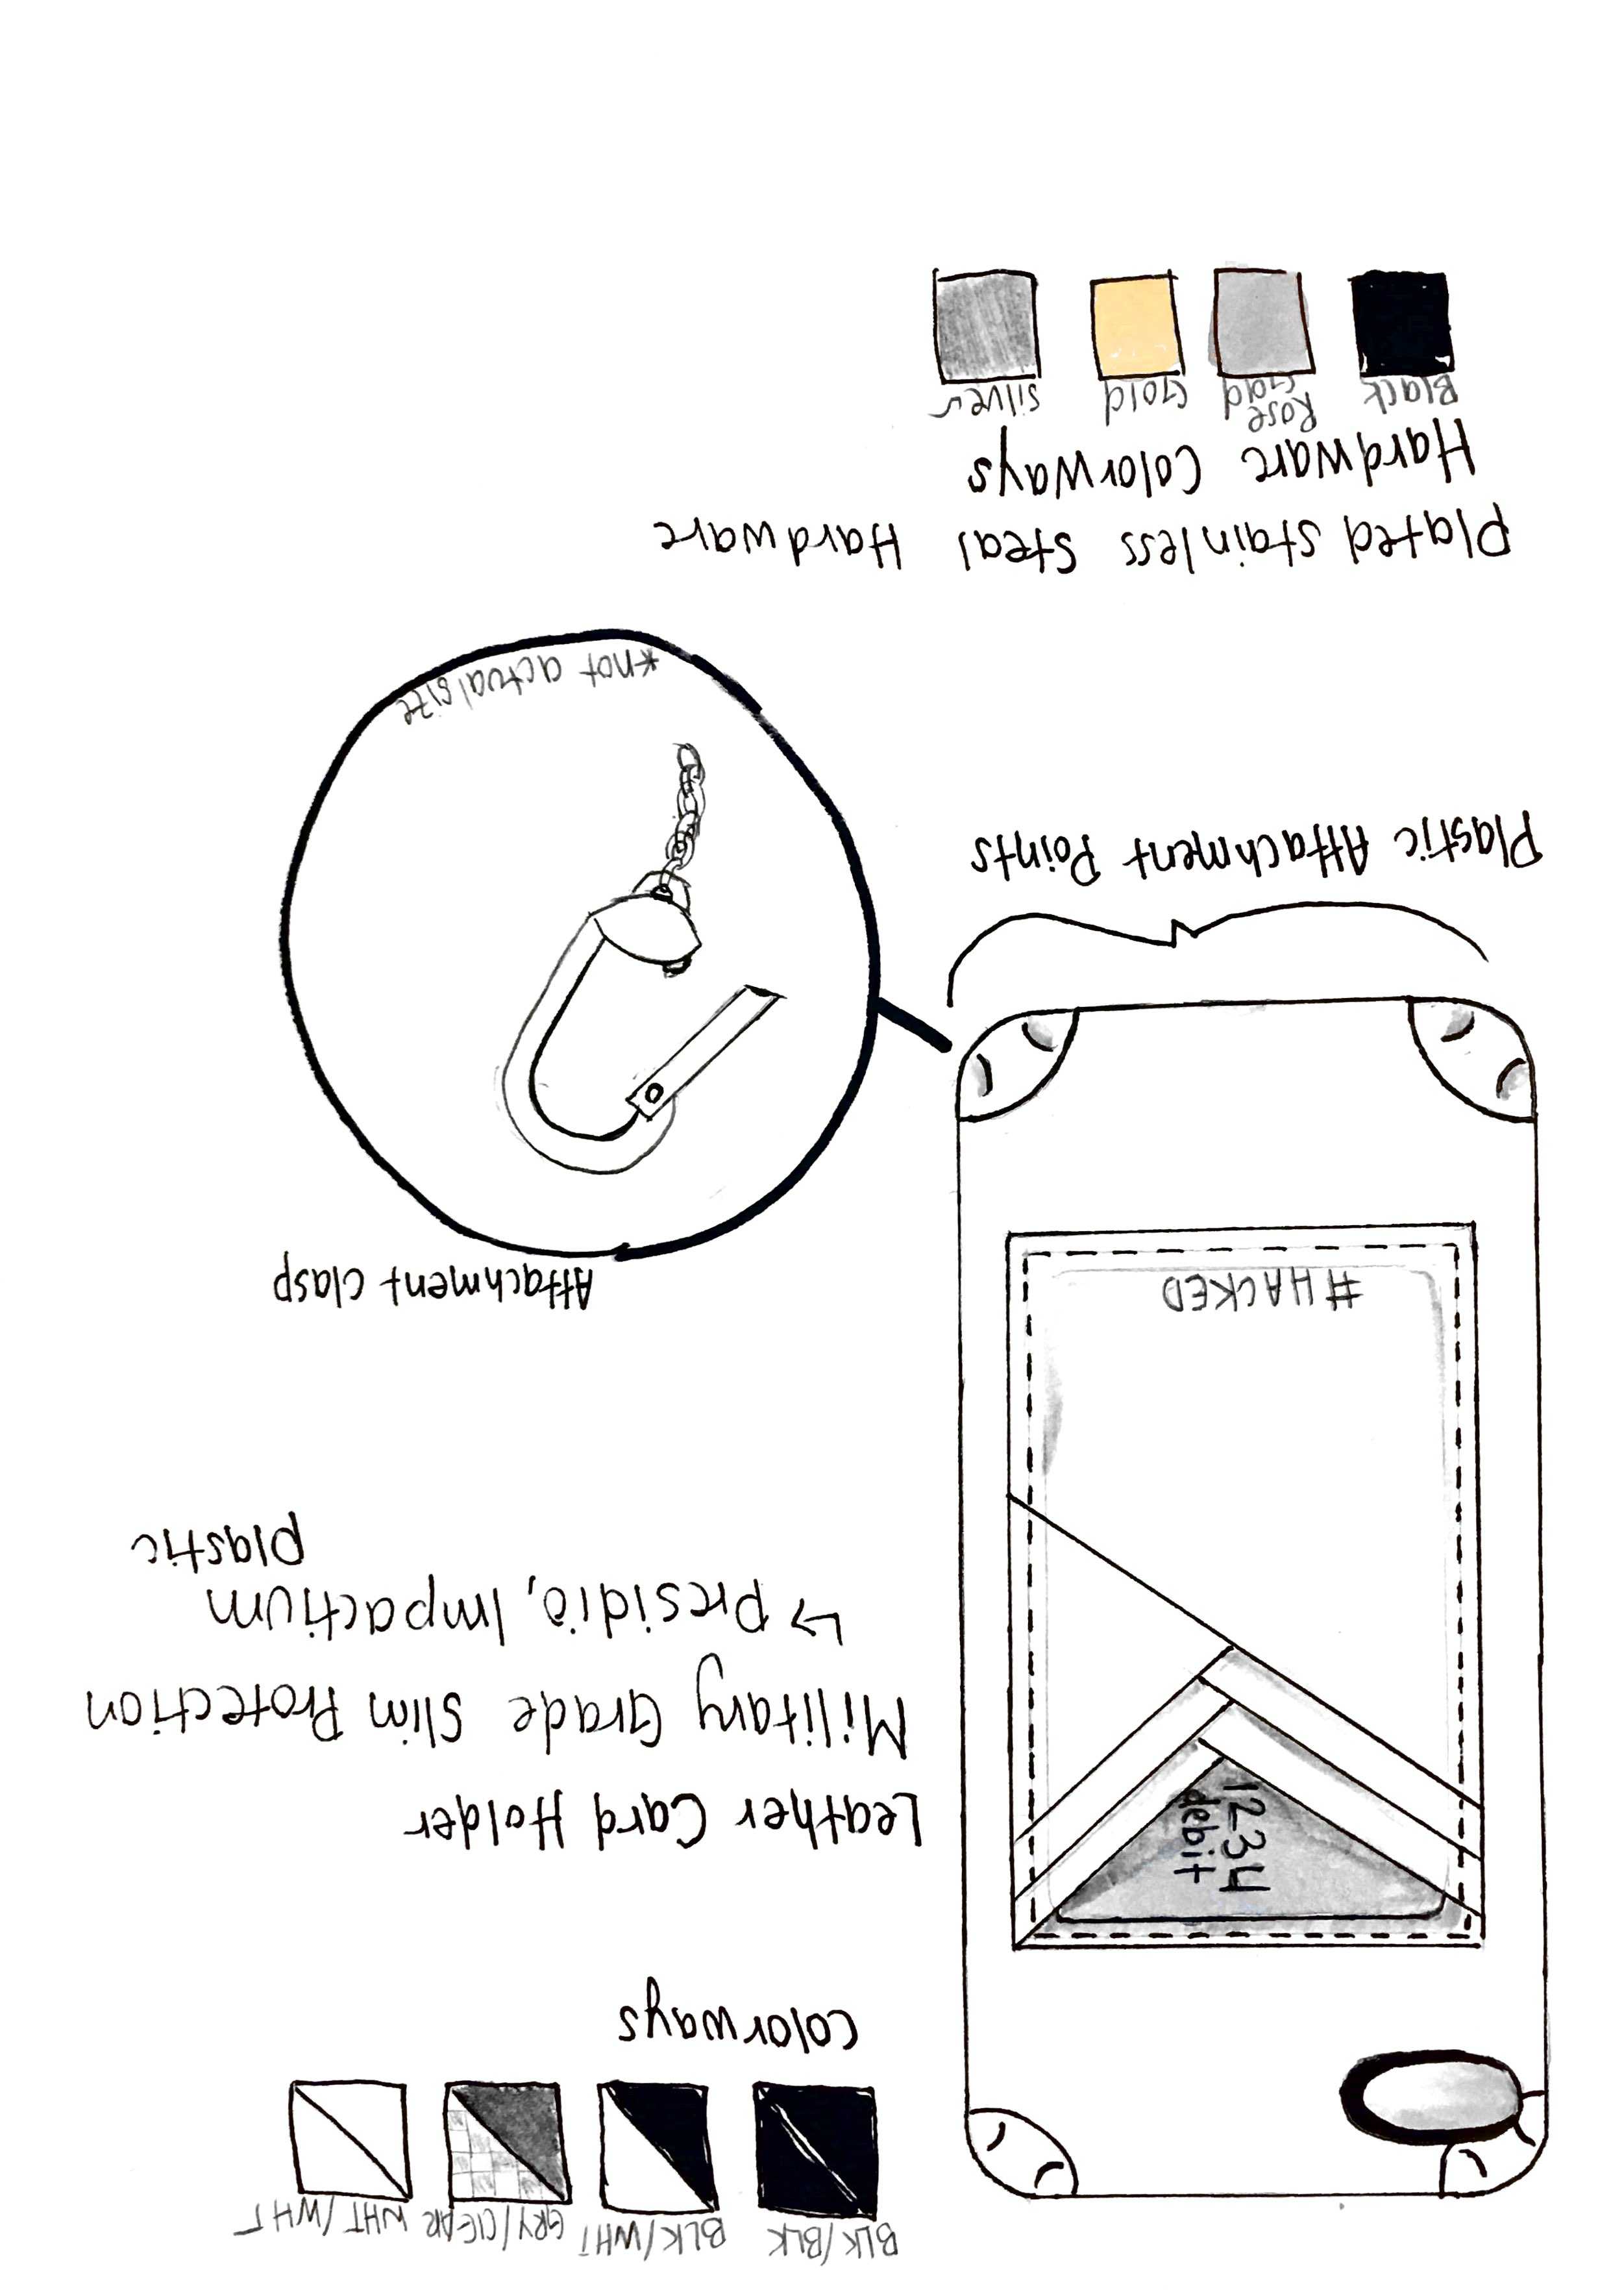 BLK/BLK
BLK/WHT
GRY/ClEAR
WHT/WHT
colorways
1234
debit
Leather Card Holder
Military Grade Slim Protection
↳ Presidio, Impactium
plastic
#HACKED
Attachment clasp
Plastic Attachment Points
*not actual size
Plated stainless Steal Hardware
Hardware Colorways
Black
Rose
Gold
Gold
silver